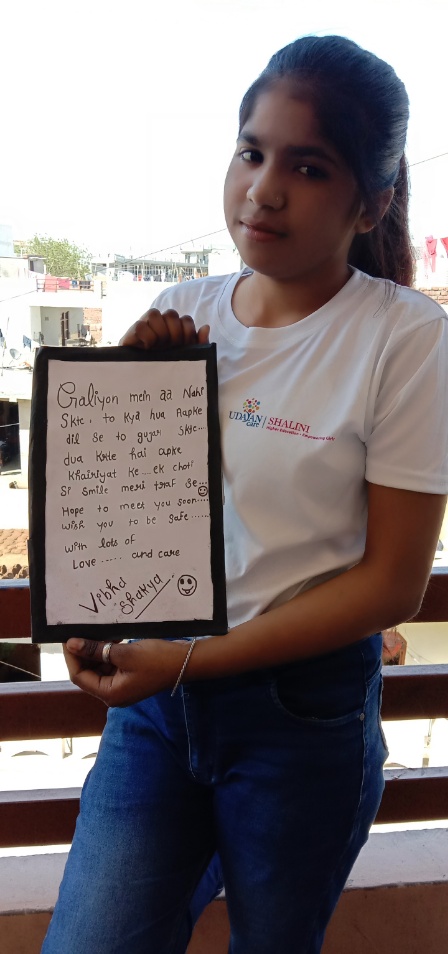 Galiyon mein aa Nahi
Skte, to kya hua Aapke
dil se to gujar Skte...
dua krte hai apke
khairiyat ke...ek choti
si smile meri traf se...
Hope to meet you soon.....
Wish you to be safe......
With lots of
Love ..... and care
Vibha
Shakya
UDAYAN care | SHALINI
Higher Education - Empowering Girls